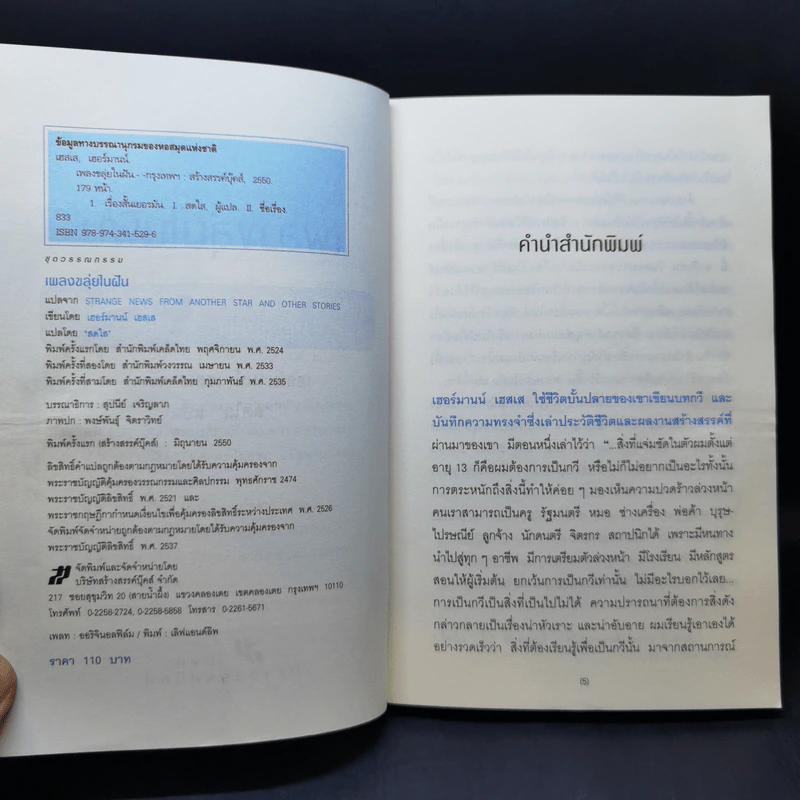 ข้อมูลทางบรรณานุกรมของหอสมุดแห่งชาติ
เฮสเส, เฮอร์มานน์.
เพลงขลุ่ยในฝัน.--กรุงเทพฯ : สร้างสรรค์บุ๊คส์, 2550.
179 หน้า.
1. เรื่องสั้นเยอรมัน. I. สดใส, ผู้แปล. II. ชื่อเรื่อง.
833
ISBN 978-974-341-529-6
ชุดวรรณกรรม
เพลงขลุ่ยในฝัน
แปลจาก STRANGE NEWS FROM ANOTHER STAR AND OTHER STORIES
เขียนโดย เฮอร์มานน์ เฮสเส
แปลโดย "สดใส"
พิมพ์ครั้งแรกโดย สำนักพิมพ์เคล็ดไทย พฤศจิกายน พ.ศ. 2524
พิมพ์ครั้งที่สองโดย สำนักพิมพ์วงวรรณ เมษายน พ.ศ. 2533
พิมพ์ครั้งที่สามโดย สำนักพิมพ์เคล็ดไทย กุมภาพันธ์ พ.ศ. 2535
บรรณาธิการ : สุปนีย์ เจริญลาภ
ภาพปก : พงษ์พันธุ์ จิตราวิทย์
พิมพ์ครั้งแรก (สร้างสรรค์บุ๊คส์) : มิถุนายน 2550
ลิขสิทธิ์คำแปลถูกต้องตามกฎหมายโดยได้รับความคุ้มครองจาก
พระราชบัญญัติคุ้มครองวรรณกรรมและศิลปกรรม พุทธศักราช 2474
พระราชบัญญัติลิขสิทธิ์ พ.ศ. 2521 และ
พระราชกฤษฎีกากำหนดเงื่อนไขเพื่อคุ้มครองลิขสิทธิ์ระหว่างประเทศ พ.ศ. 2526
จัดพิมพ์จัดจำหน่ายถูกต้องตามกฎหมายโดยได้รับความคุ้มครองจาก
พระราชบัญญัติลิขสิทธิ์ พ.ศ. 2537
จัดพิมพ์และจัดจำหน่ายโดย
บริษัทสร้างสรรค์บุ๊คส์ จำกัด
217 ซอยสุขุมวิท 20 (สายน้ำผึ้ง) แขวงคลองเตย เขตคลองเตย กรุงเทพฯ 10110
โทรศัพท์ 0-2258-2724, 0-2258-5858 โทรสาร 0-2261-5671
เพลท : ออริจินอลฟิล์ม / พิมพ์ : เลิฟแอนด์ลิพ
ราคา 110 บาท
คำนำสำนักพิมพ์
เฮอร์มานน์ เฮสเส ใช้ชีวิตบั้นปลายของเขาเขียนบทกวี และ
บันทึกความทรงจำซึ่งเล่าประวัติชีวิตและผลงานสร้างสรรค์ที่
ผ่านมาของเขา มีตอนหนึ่งเล่าไว้ว่า "...สิ่งที่แจ่มชัดในตัวผมตั้งแต่
อายุ 13 ก็คือผมต้องการเป็นกวี หรือไม่ก็ไม่อยากเป็นอะไรทั้งนั้น
การตระหนักถึงสิ่งนี้ทำให้ค่อย ๆ มองเห็นความปวดร้าวล่วงหน้า
คนเราสามารถเป็นครู รัฐมนตรี หมอ ช่างเครื่อง พ่อค้า บุรุษ-
ไปรษณีย์ ลูกจ้าง นักดนตรี จิตรกร สถาปนิกได้ เพราะมีหนทาง
นำไปสู่ทุก ๆ อาชีพ มีการเตรียมตัวล่วงหน้า มีโรงเรียน มีหลักสูตร
สอนให้ผู้เริ่มต้น ยกเว้นการเป็นกวีเท่านั้น ไม่มีอะไรบอกไว้เลย...
การเป็นกวีเป็นสิ่งที่เป็นไปไม่ได้ ความปรารถนาที่ต้องการสิ่งดัง
กล่าวกลายเป็นเรื่องน่าหัวเราะ และน่าอับอาย ผมเรียนรู้เอาเองได้
อย่างรวดเร็วว่า สิ่งที่ต้องเรียนรู้เพื่อเป็นกวีนั้น มาจากสถานการณ์
(5)